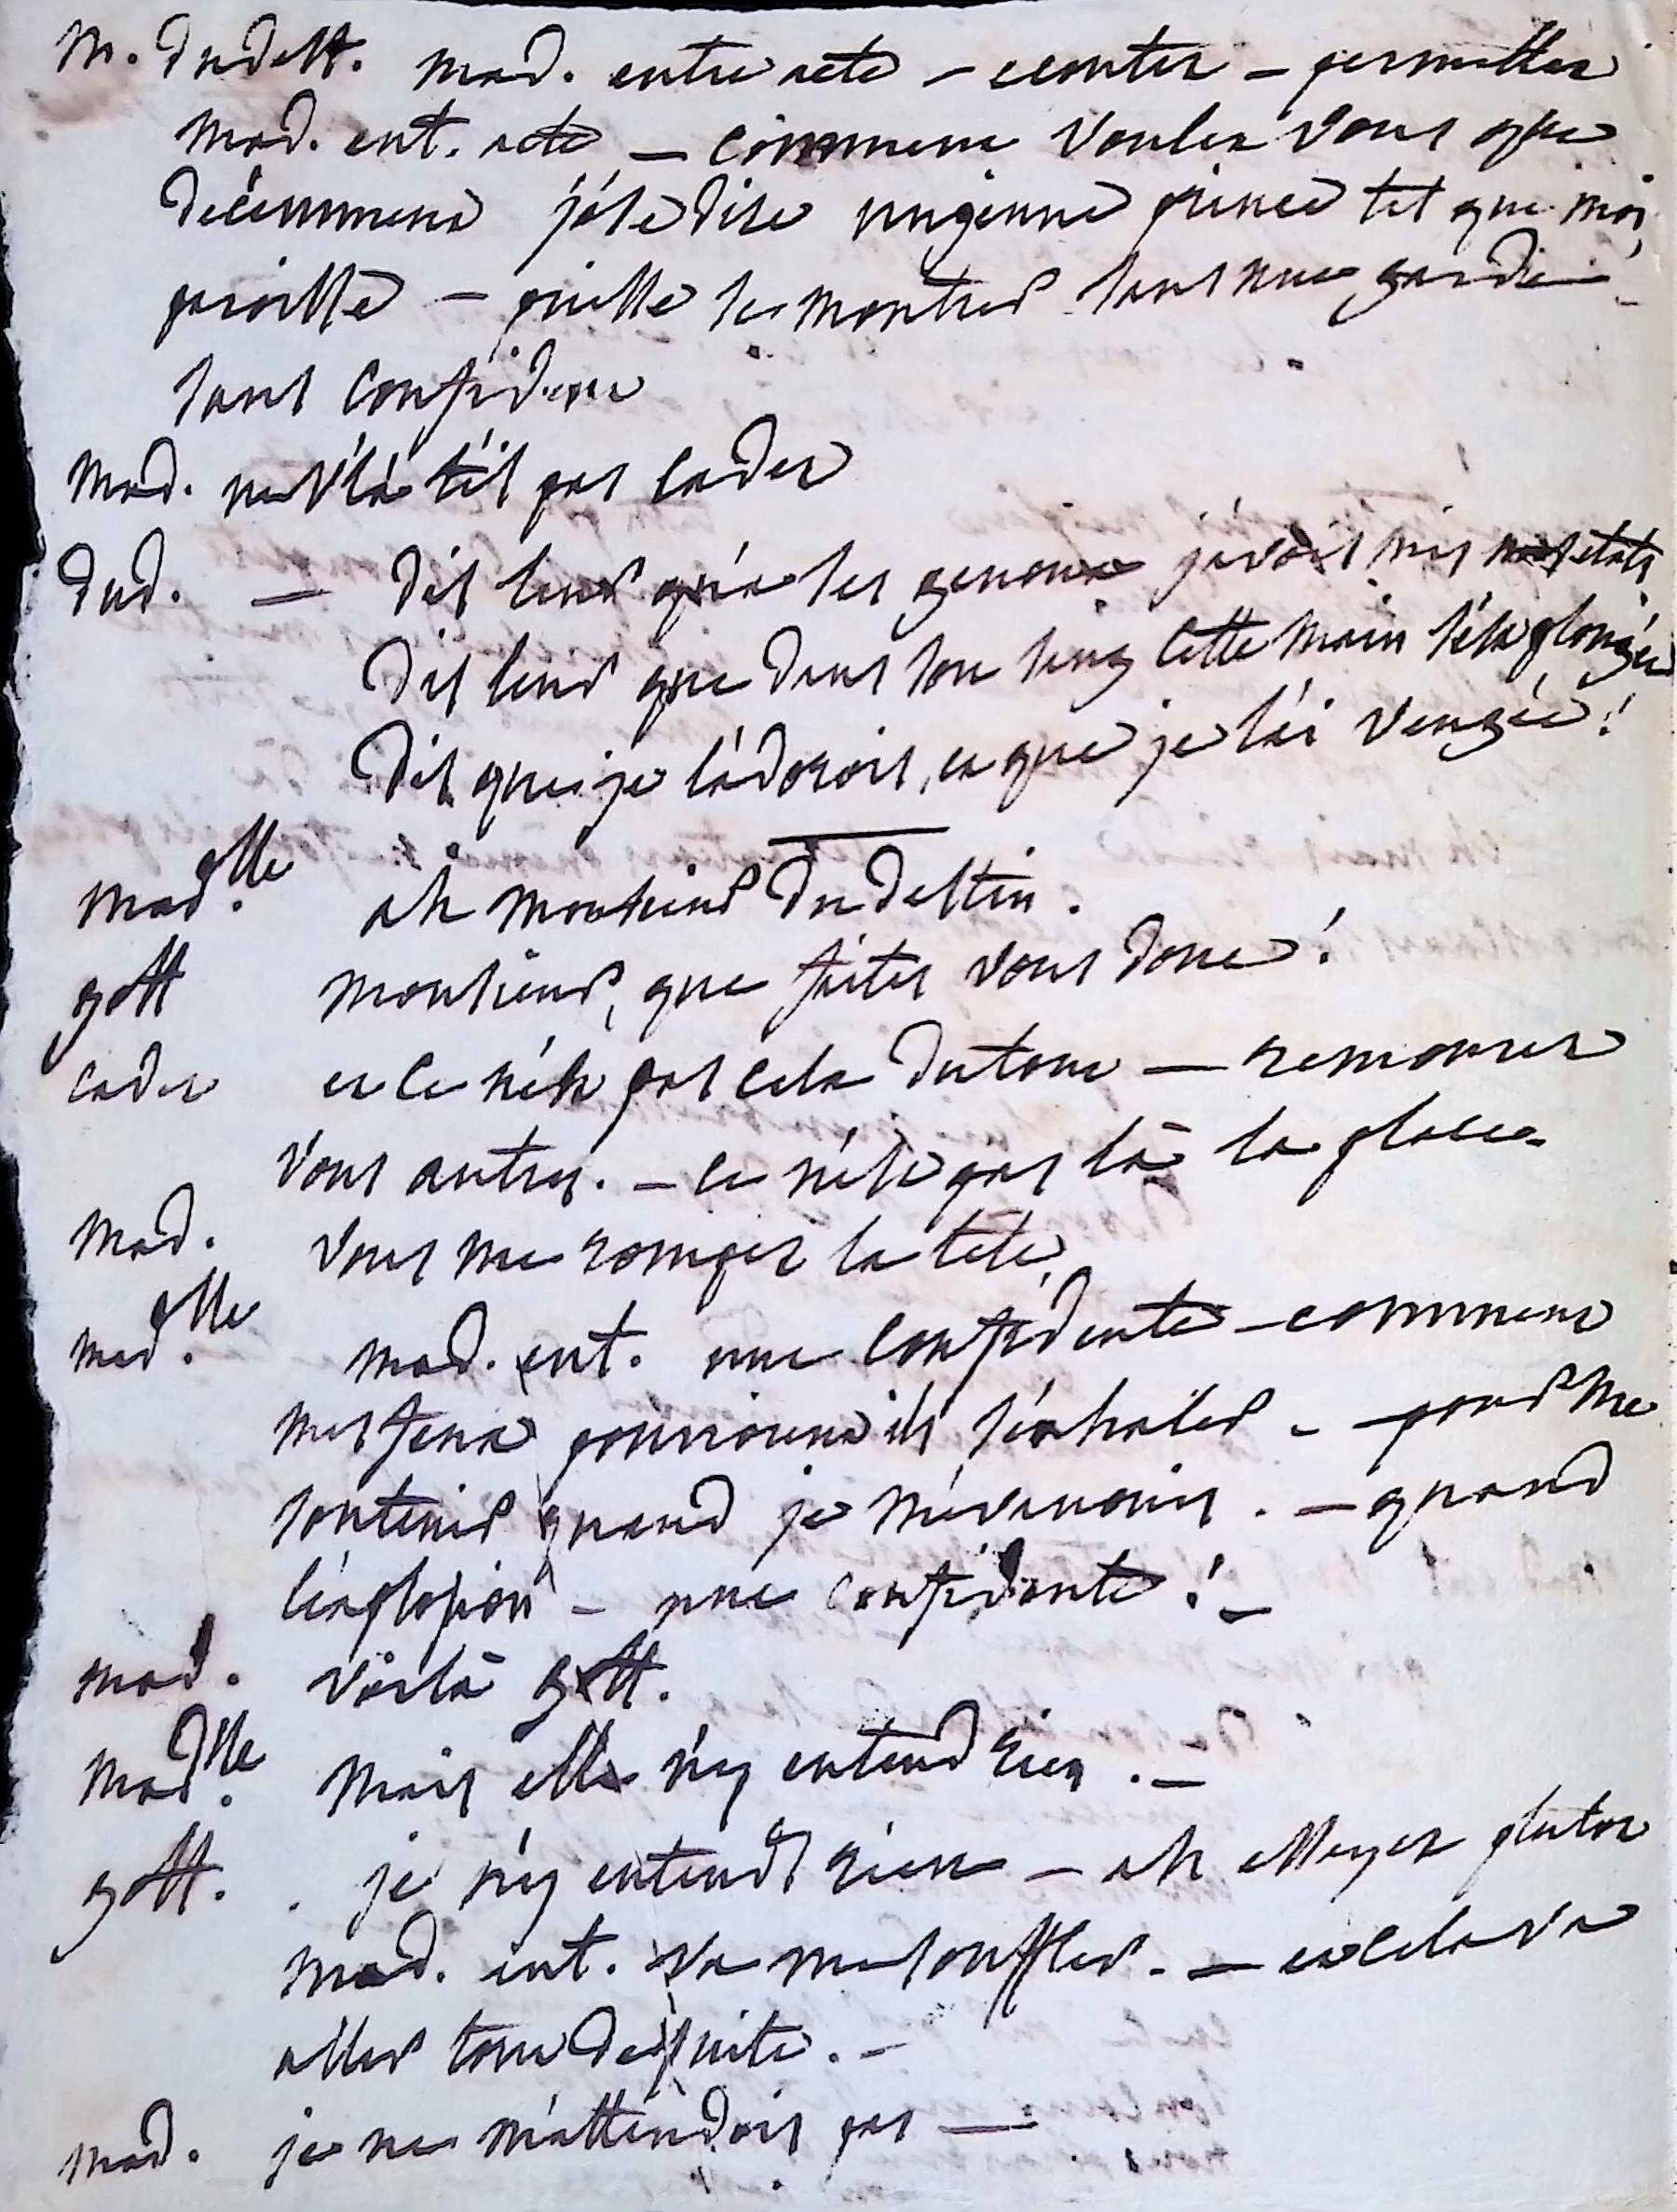 M. dudest. mad. entre acte – ecoutez – permettez
mad. ent. acte – comment voulez vous que
decemment j'ose dire un jeune prince tel que moi,
paroisse – puisse se montrer sans une garde –
sans confident
mad. ne v'la t'il pas cadet
dud. — Dis leur qu'a ses genoux j'avois mis mes etats
Dis leur que dans son sang cette main s'est plongée
Dis que je l'adorois, et que je l'ai vengée!
mad.elle ah monsieur dudestin.
gott monsieur, que faites vous donc!
cadet et ce n'est pas cela du tout — remonter
vous autres. – ce n'est pas là la place.
mad. vous me rompez la tete,
mad.elle mad. ent. une confidente – comment
mes feux pourroient ils s'exhaler – pour me
soutenir quand je m'evanouis. – quand
l'explosion – une confidente! –
mad. voilà gott.
mad.lle mais elle n'y entend rien. –
gott. je n'y entends rien – ah essayez plutot
mad. ent. va me souffler. – et cela va
aller tout de suite. –
mad. je ne m'attendois pas —